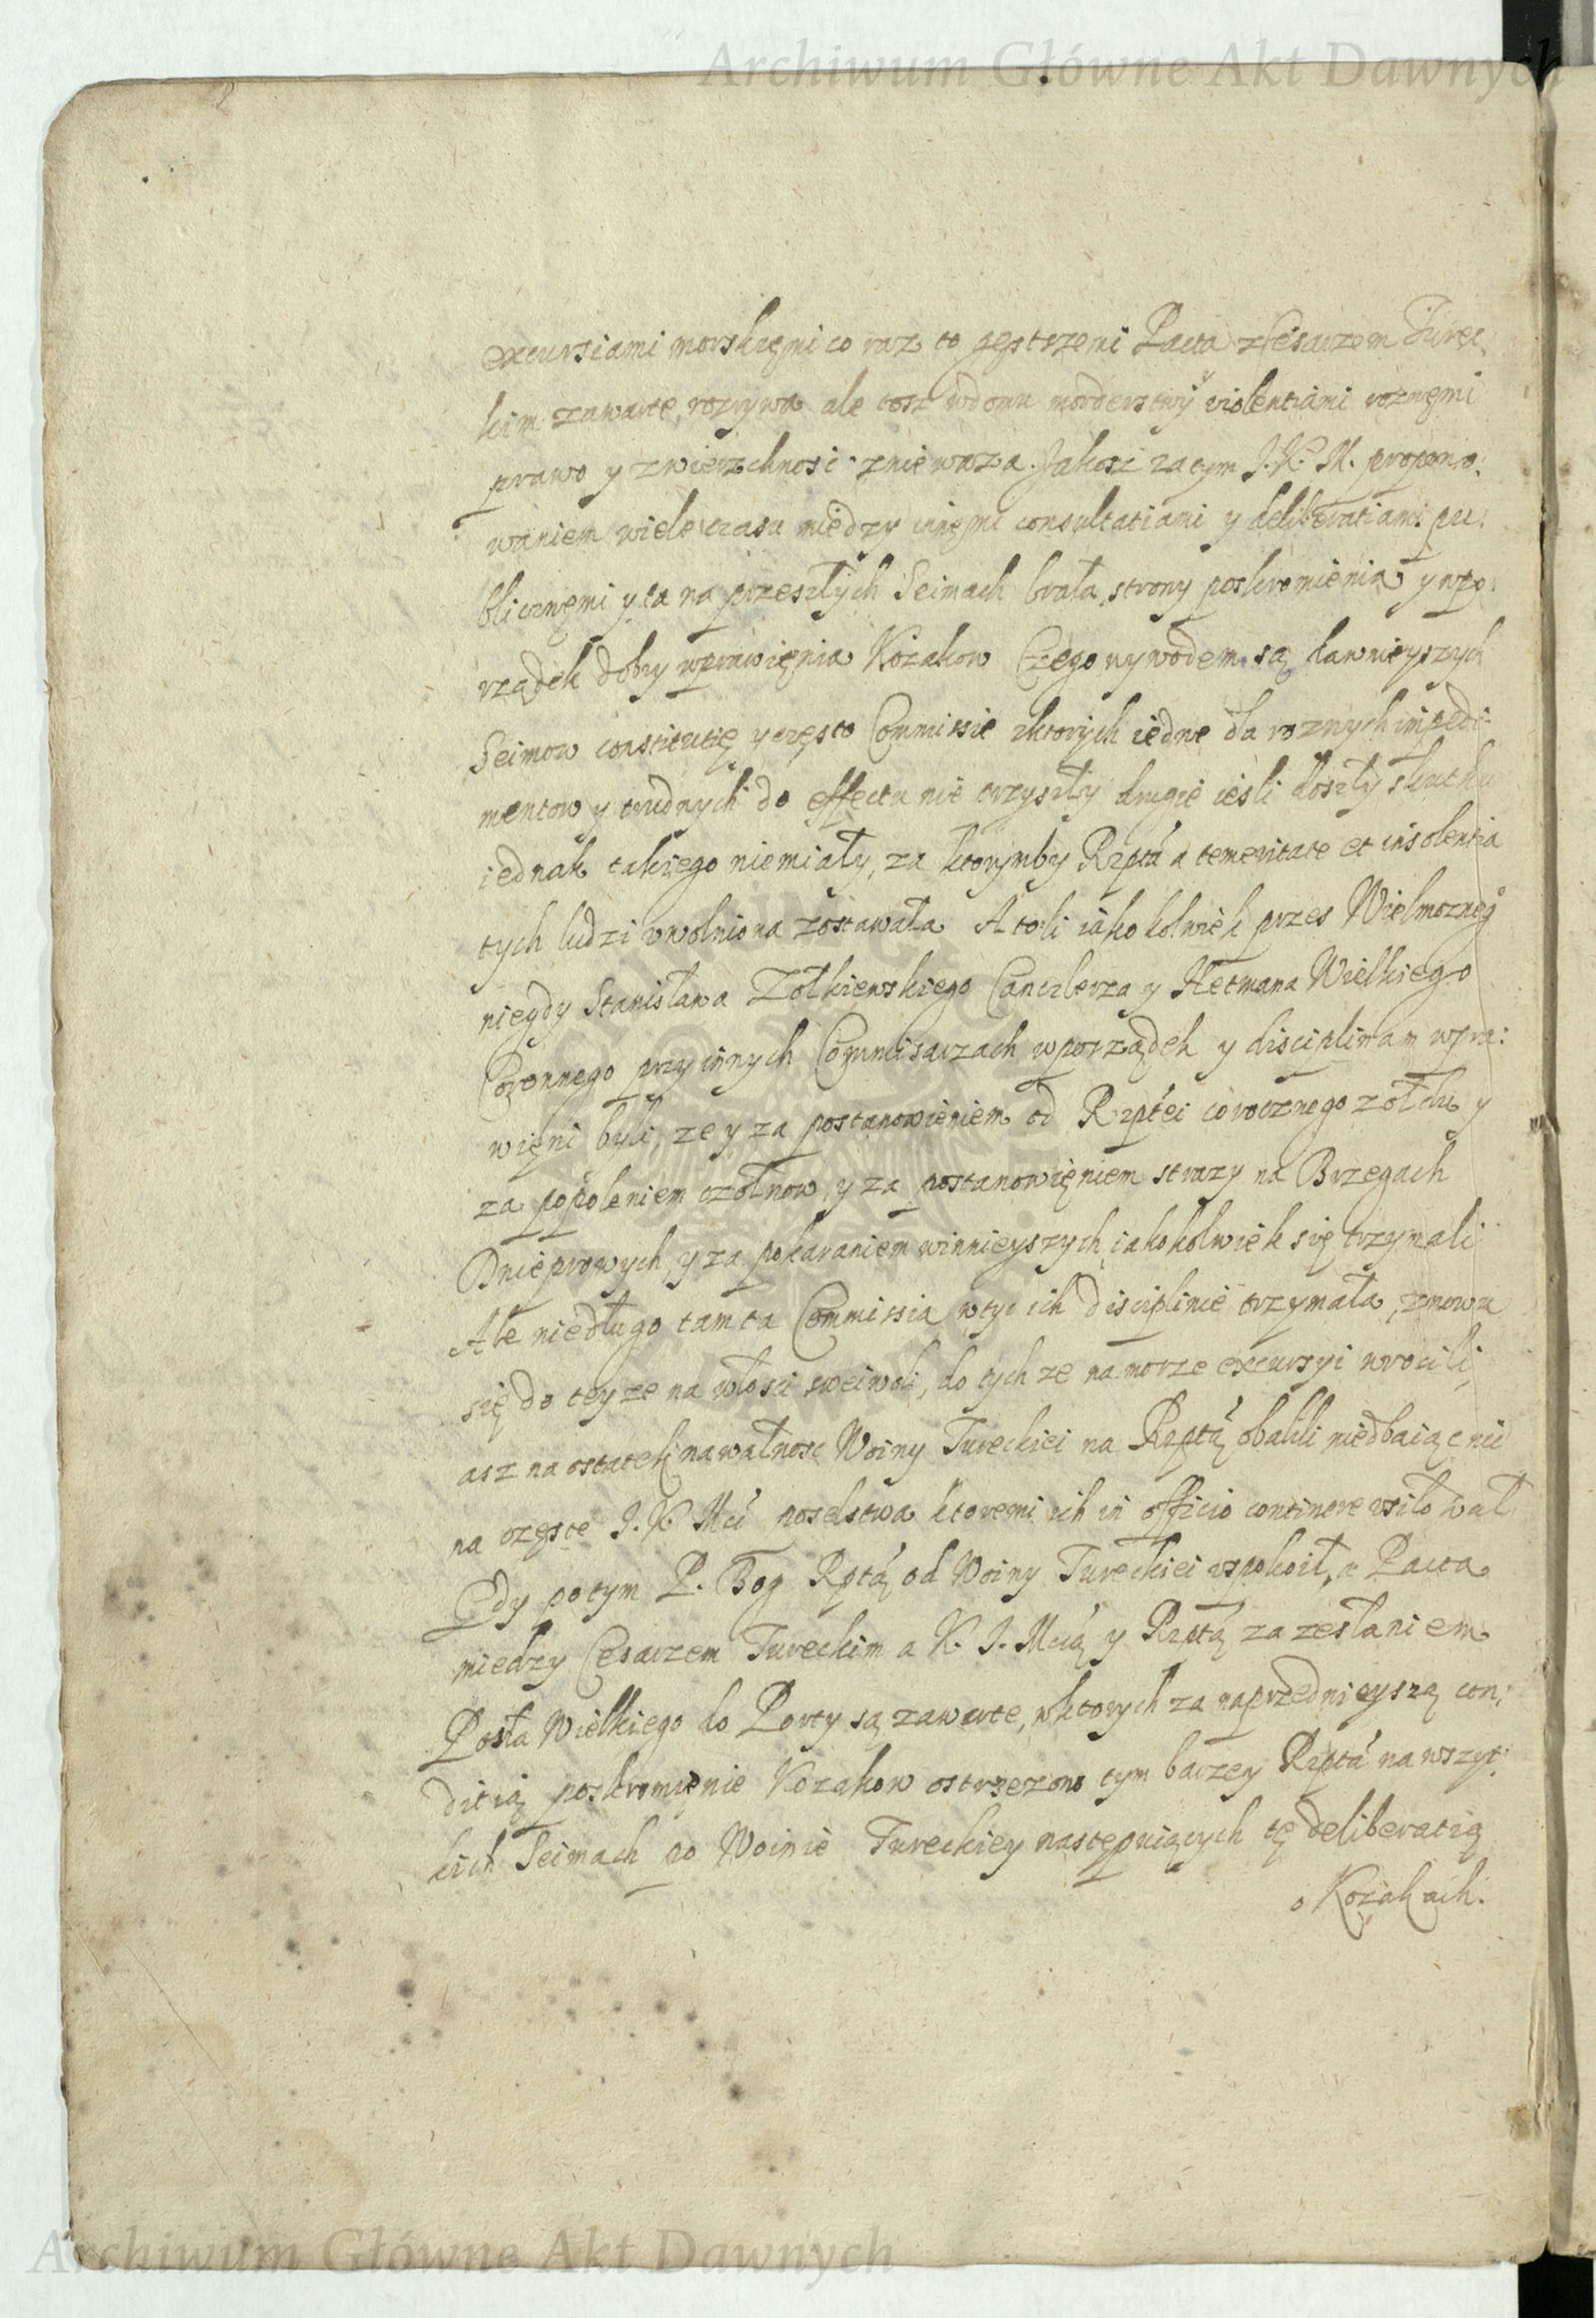 Archiwum Główne Akt Dawnych
excursiami morskięmi co raz to gęstszemi Pacta z Cesarzem Turec:
kim zawarte, rozrywa ale tosz wdomu morderstwy violentiami roznęmi
prawo y zwierzchnosć zniewaza. Jakosz zatym J. K. M. propono:
waniem wiele czasu między innęmi consultatiami y deliberatiami pu:
blicznęmi y ta na przeszłych Seimach brała, strony poskromienia y wpo:
rządek dobry wprawięnia Kozakow Czego wywodem są dawnieyszych
Seimow constitutię y często Commissie zktorych iedne dla roznych impedi:
mentow y trudnych do effectu nie przyszły drugie iesli doszły skutku
iednak takiego niemiały, za ktorymby Rzptá a temeritate et insolentia
tych ludzi uwolniona zostawała A toli iako kolwiek przes Wielmoznego
niegdy Stanisława Zołkiewskiego Canclerza y Hetmana Wielkiego
Coronnego przy innych Commisarzach wporządek y disciplinam wpra:
więni byli, ze y za postanowieniem od Rzptei corocznego zołdu y
za popoleniem czołnow, y za postanowięniem strazy na Brzegach
Dnieprowych, y za pokaraniem winnieyszych, iakokolwiek się trzymali
Ale niedługo tamta Commissia wtyc ich disciplinie trzymała, znowu
się do teyze na włosci sweiwoli, do tych ze na morze excursyi wrocili,
asz na ostatek nawałnosc Woiny Tureckiei na Rzptą obalili niedbaiąc nic
na częste J. K. Mci poselstwa ktoremi ich in officio continere usiłował
Gdy potym P. Bog Rptą od Woiny Tureckiei uspokoił, a Pacta
miedzy Cesarzem Tureckim a K. J. Mcią y Rzptą za zesłaniem
Posła Wielkiego do Porty są zawarte, wktorych za naprzednieyszą con:
ditią poskromięnie Kozakow ostrzezono tym barzey Rzptá na wszyt:
kich Seimach po Woinie Tureckiey następuiących tę deliberatią
o Kozakach.
Archiwum Główne Akt Dawnych